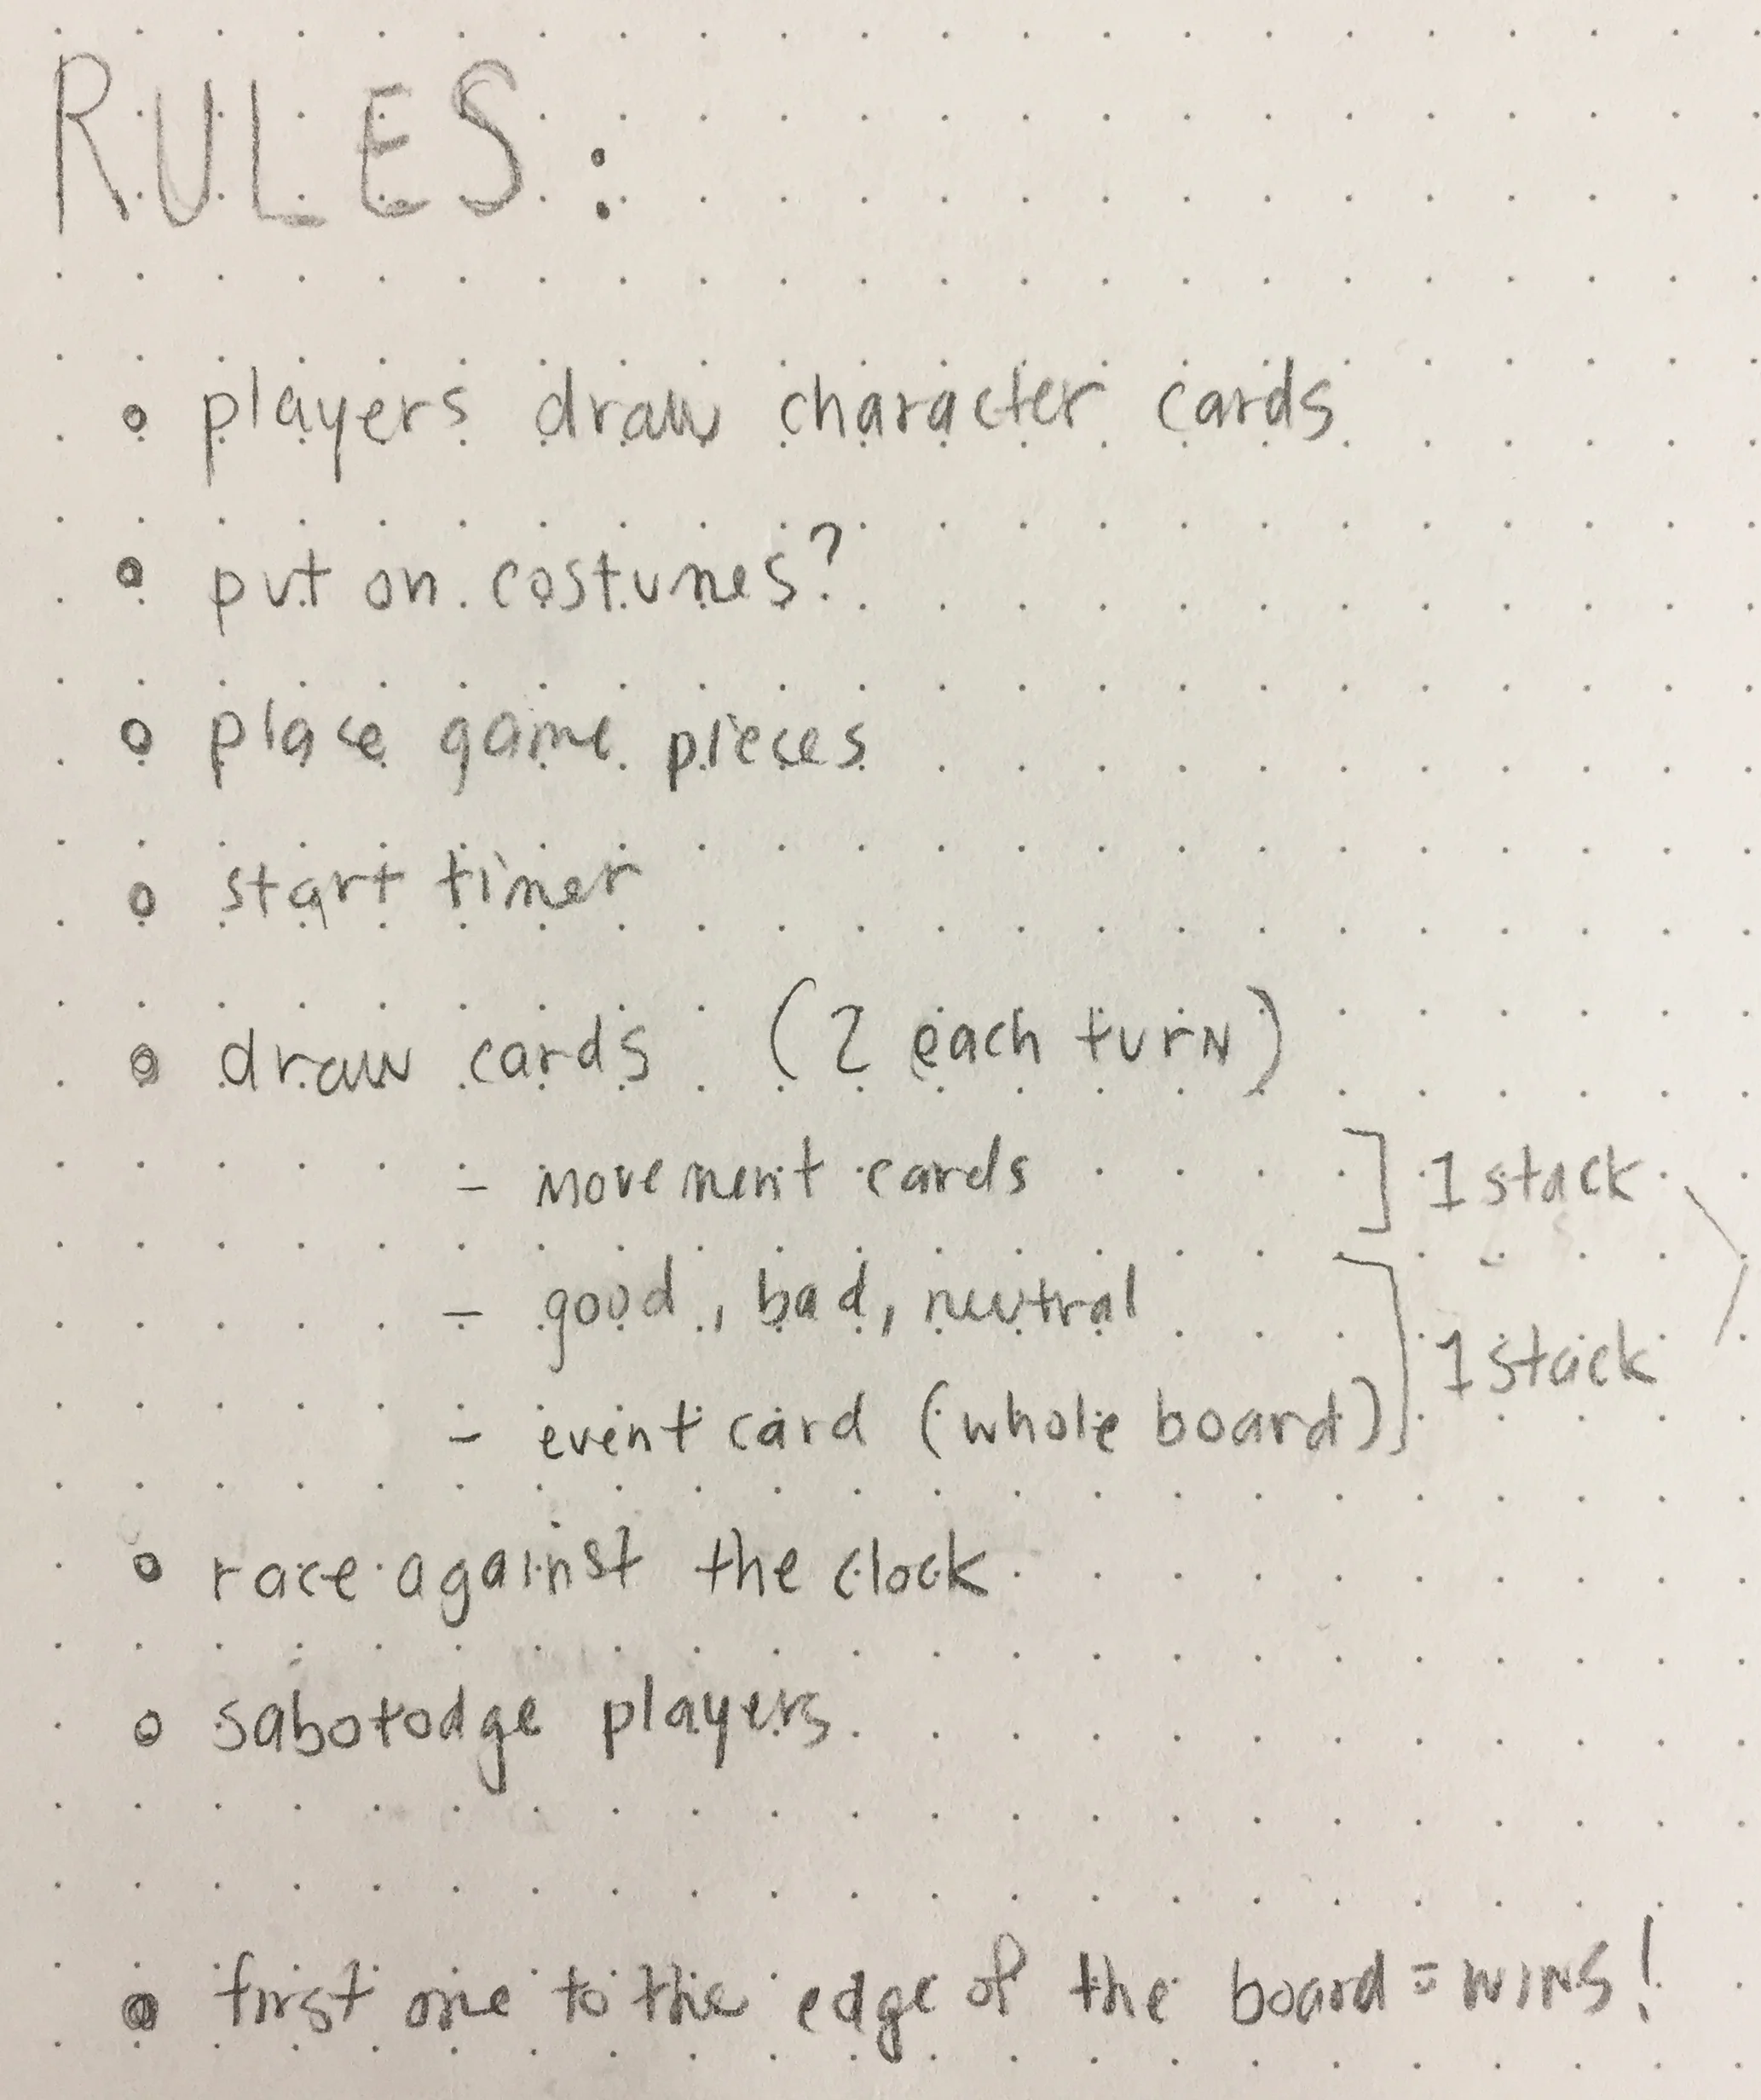 RULES:
• players draw character cards
• put on costumes?
• place game pieces
• start timer
• draw cards (2 each turn)
- movement cards ] 1 stack
- good, bad, neutral
- event card (whole board) ] 1 stack
• race against the clock
• sabotodge players
• first one to the edge of the board = wins!